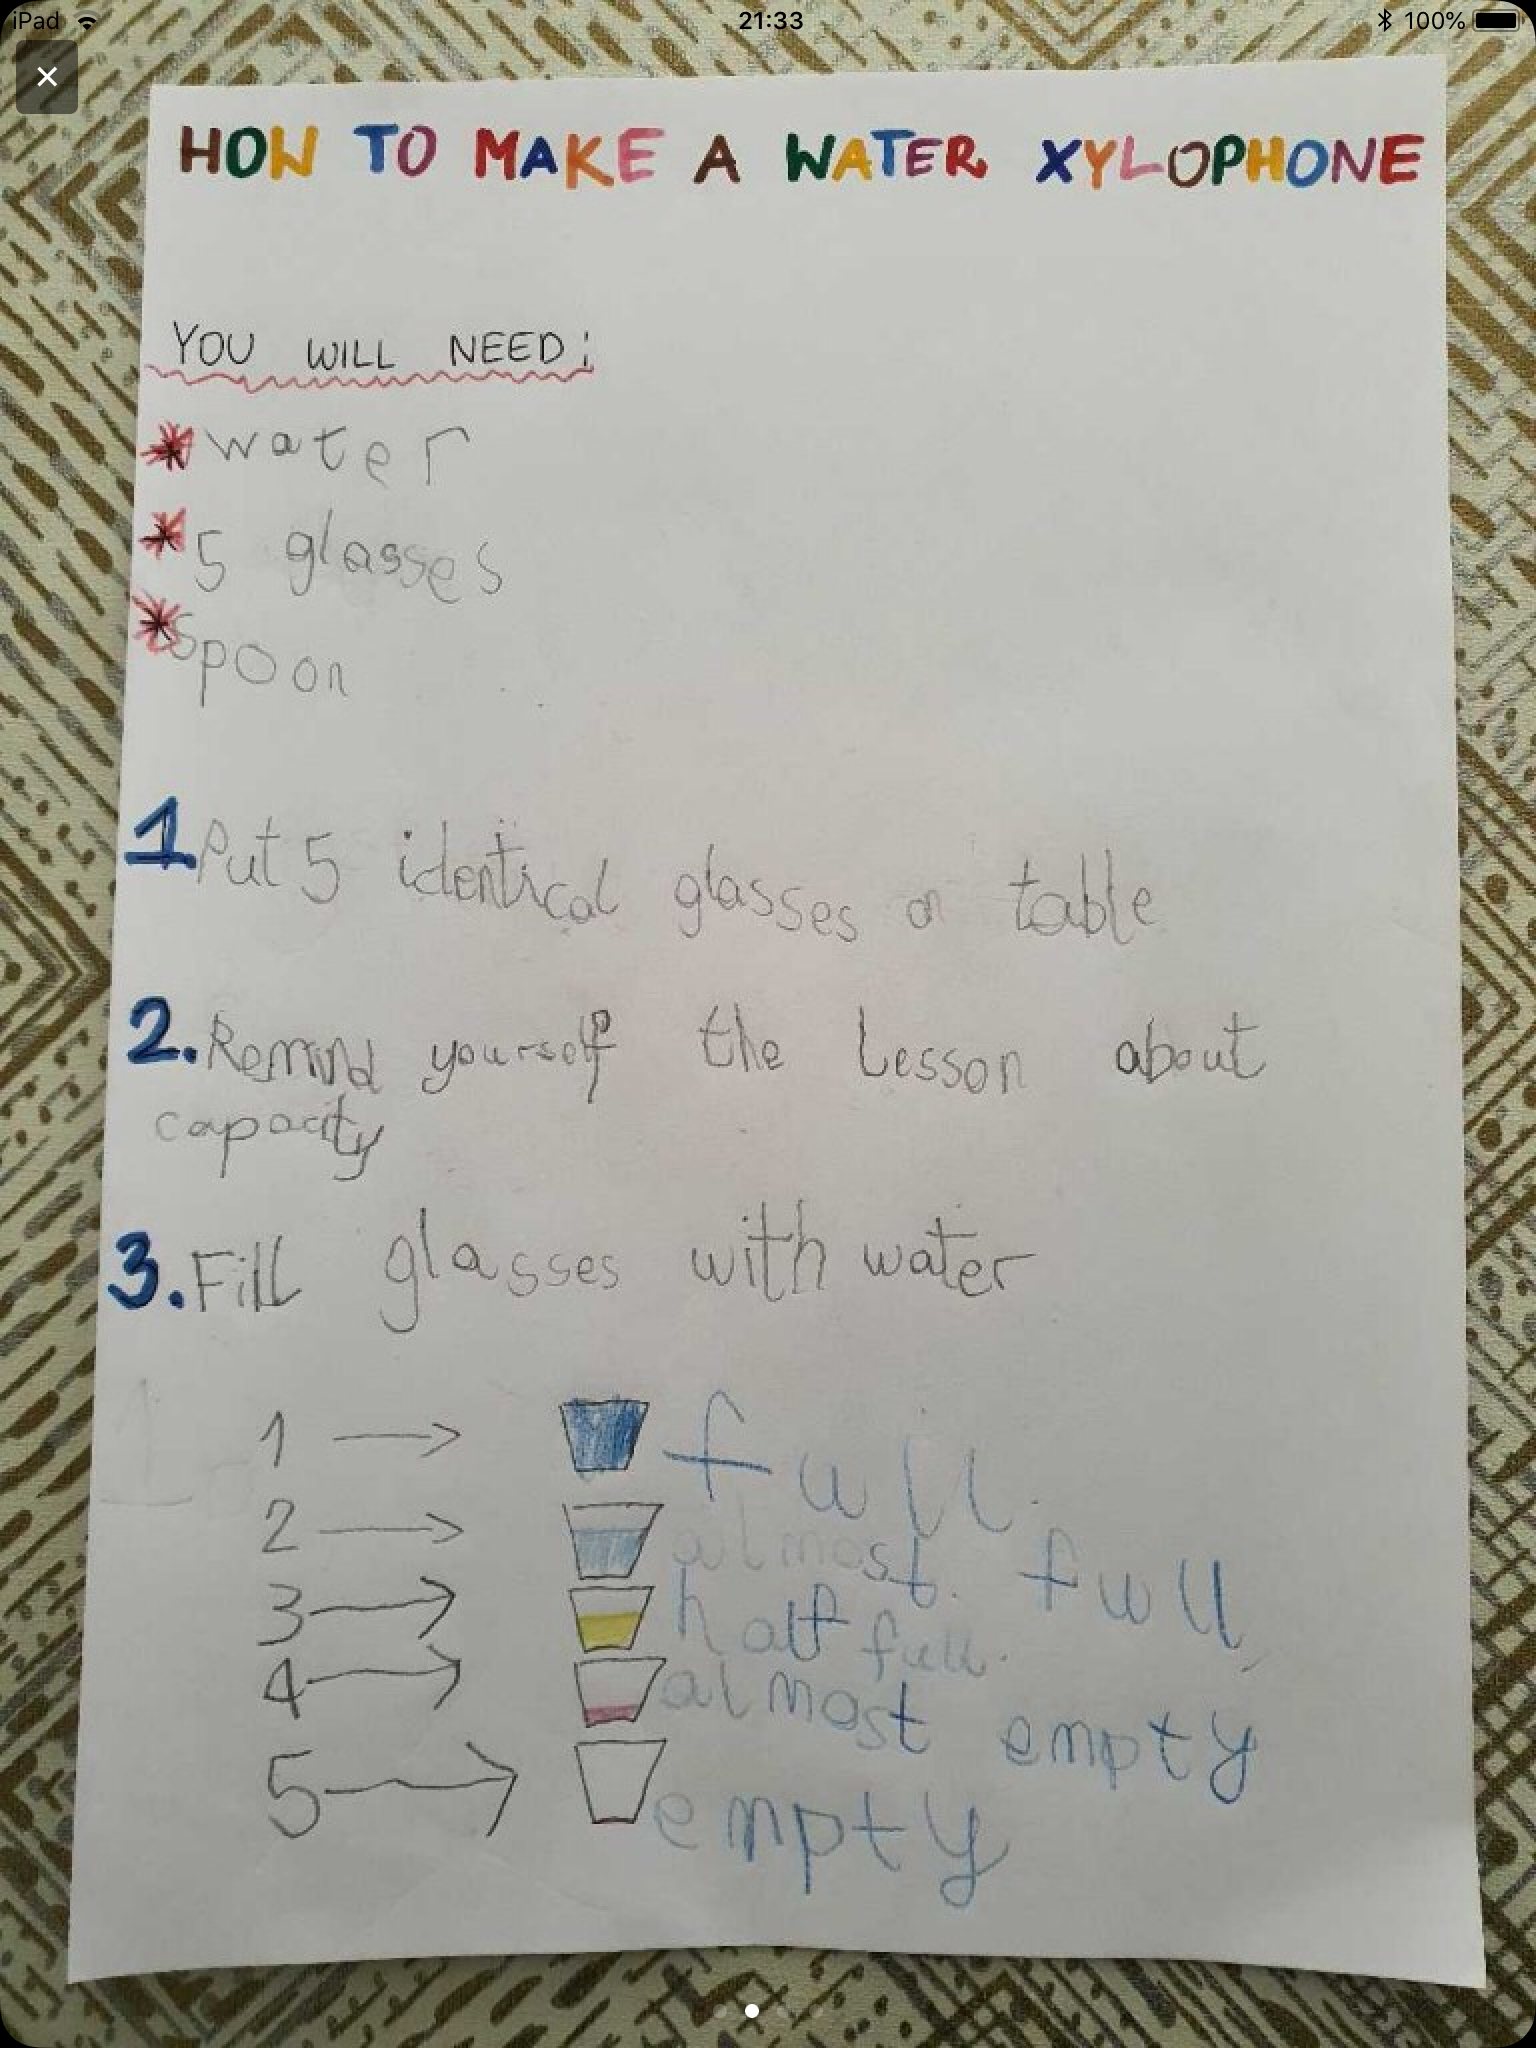 iPad 21:33 100%
HOW TO MAKE A WATER XYLOPHONE
YOU WILL NEED:
* water
* 5 glasses
* Spoon
1. Put 5 identical glasses on table
2. Remind yourself the lesson about
capacity
3. Fill glasses with water
1 → full.
2 → almost full
3 → half full.
4 → almost empty
5 → empty